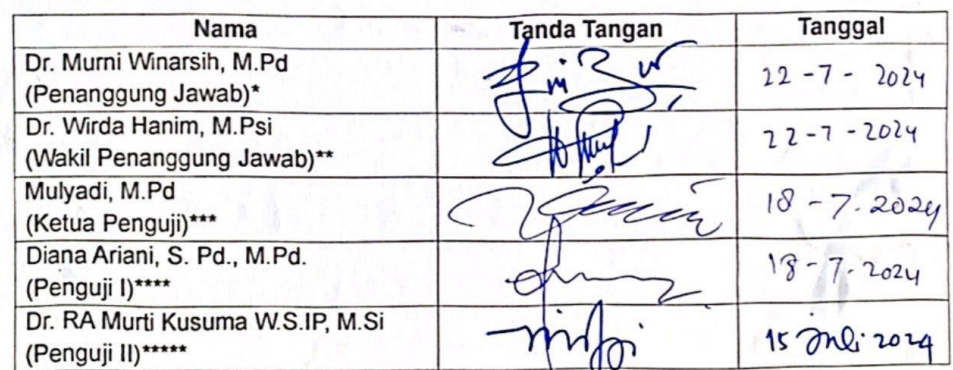 Nama Tanda Tangan Tanggal
Dr. Murni Winarsih, M.Pd
(Penanggung Jawab)* 22 - 7 - 2024
Dr. Wirda Hanim, M.Psi
(Wakil Penanggung Jawab)** 22 - 7 - 2024
Mulyadi, M.Pd
(Ketua Penguji)*** 18 - 7 - 2024
Diana Ariani, S. Pd., M.Pd.
(Penguji I)**** 18 - 7 - 2024
Dr. RA Murti Kusuma W.S.IP, M.Si
(Penguji II)***** 15 Juli 2024